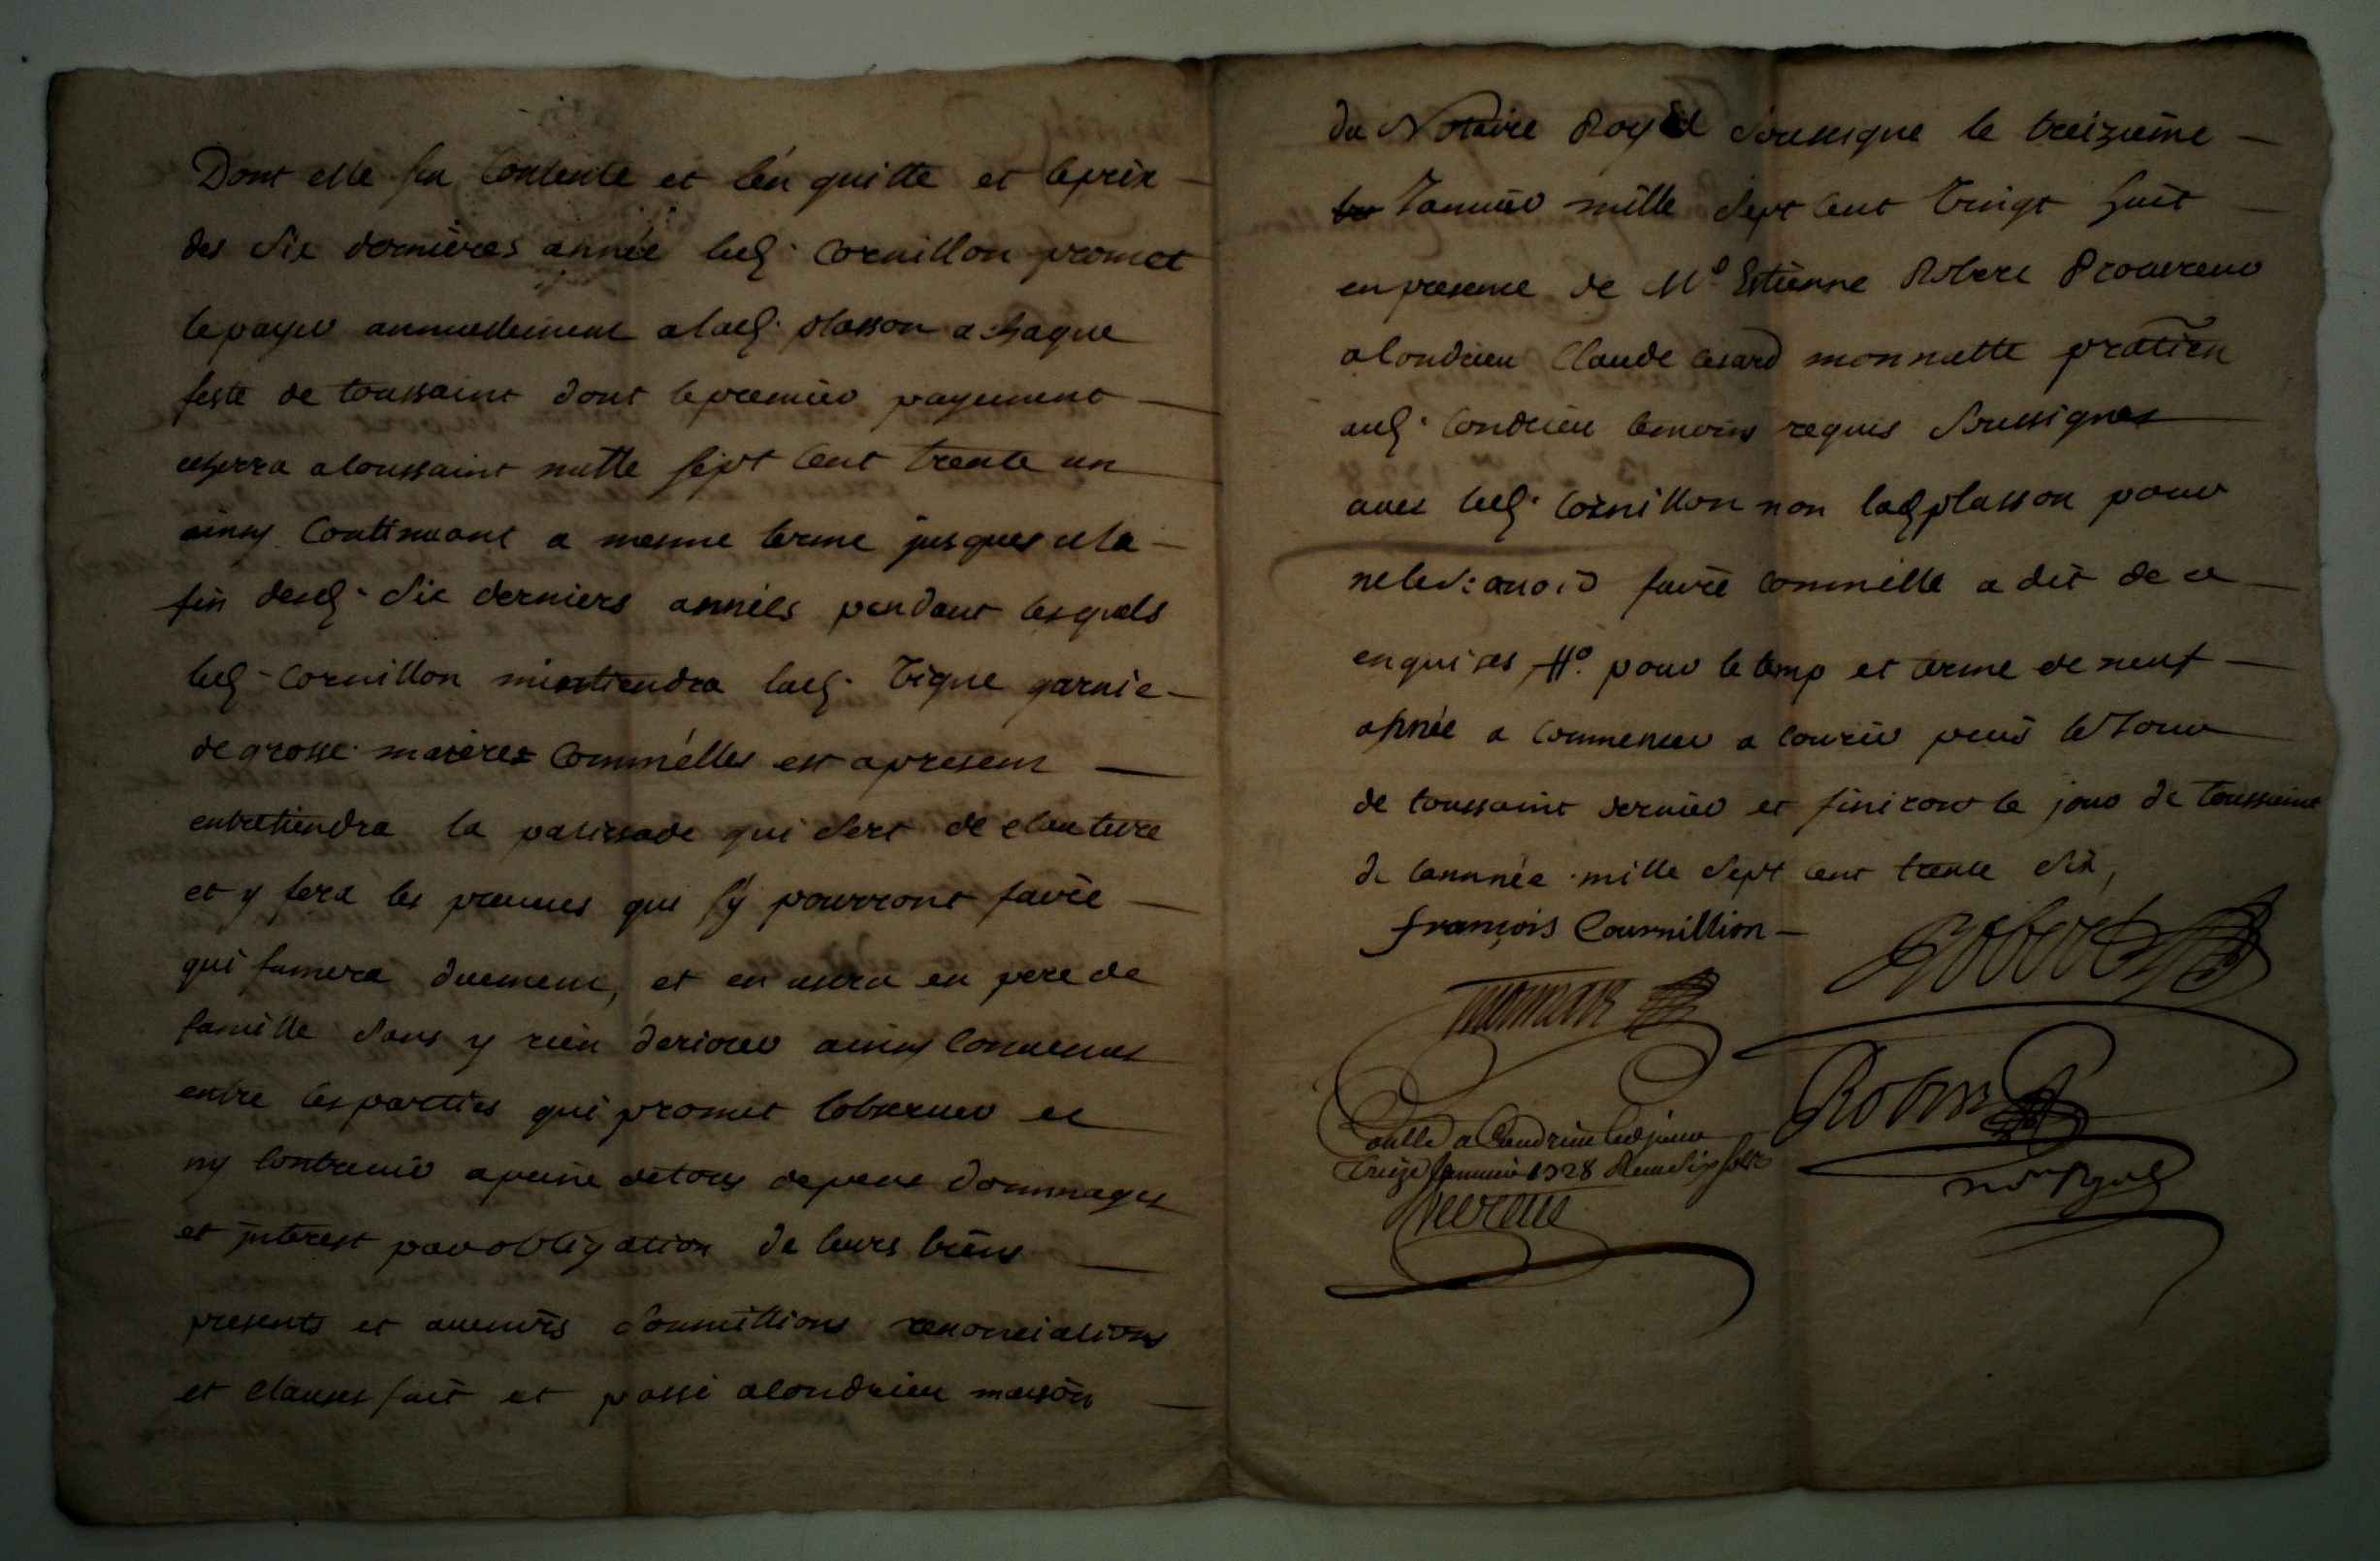 Dont elle sen contente et len quitte et leprix
des six dernières année led. Cornillon promet
lepayer annuellement alad. plasson a chaque
feste de toussaint dont lepremier payement
esherra atoussaint mille sept cent trente un
ainsy Continuant a mesme terme jusques ala
fin desd. six derniers années pendant lesquels
led. Cornillon mientiendra lad. Vigne garnie
de grosse comm'elles est apresent
entretiendra la palissade qui sert de clauture
et y fera les preuues qui s'y pourront faire
qui fumera duement, et en usera en pere de
famille sans y rien deriorer ainsy Conuenues
entre lesparties qui promet lobseruer et
ny Contreuenir apeine detous depens dommages
et jnterest parobligation de leurs biens
presents et auenirs soumittions renonciations
et clauses fait et passé acondrieu maison
du Notaire Royal soussigne le treizieme
Januier mille sept cent vingt huit
enpresence de Me Estienne Robert Procureur
acondrieu Claude cesard monnatte pratitien
aud. Condrieu temoins requis soussignes
auec led. Cornillon non lad plasson pour
nelesçauoir faire comm'elle a dit de ce
enquises pour le temp et terme de neuf
année a commencer a courir puis le Jour
de toussaint dernier et finiront le jour de toussaint
de lannnée mille sept cent trente six,
françois Cournillion
Robert
Robin
Controllé a Condrieu led jour
treize Januier 1728 Receu six sols
nore Royal